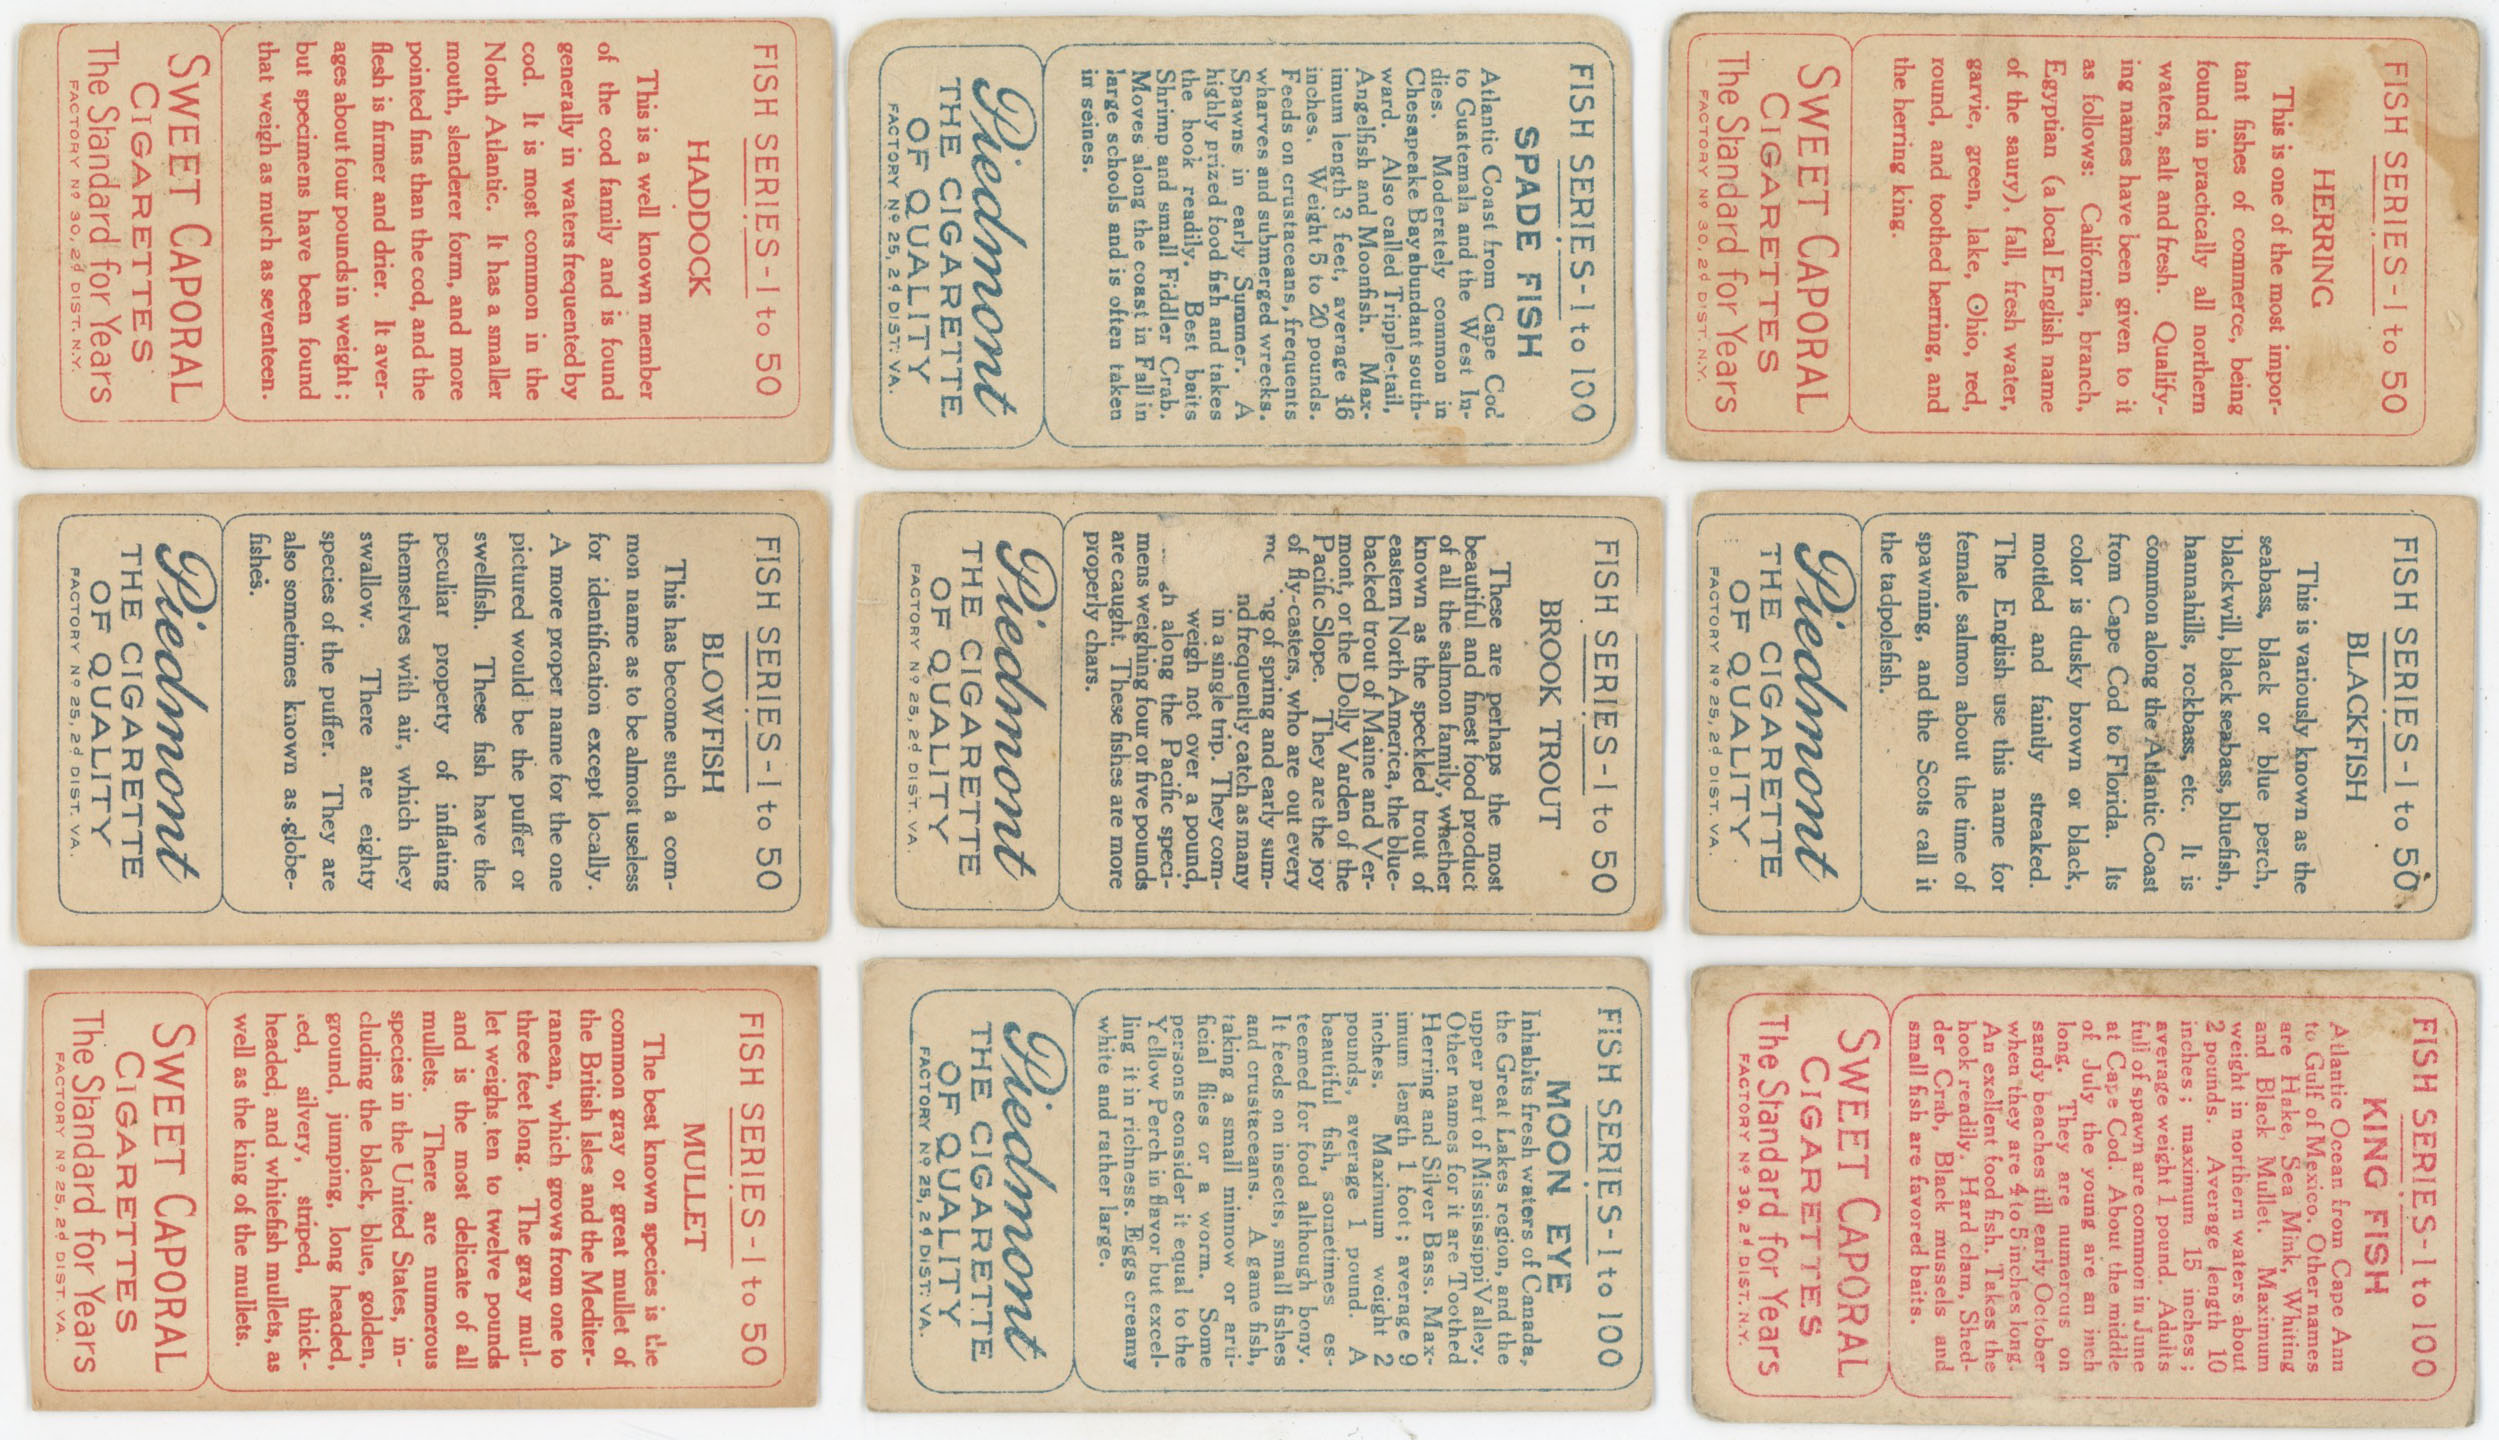 FISH SERIES - 1 to 50
HADDOCK
This is a well known member
of the cod family and is found
generally in waters frequented by
cod. It is most common in the
North Atlantic. It has a smaller
mouth, slenderer form, and more
pointed fins than the cod, and the
flesh is firmer and drier. It aver-
ages about four pounds in weight;
but specimens have been found
that weigh as much as seventeen.
SWEET CAPORAL
CIGARETTES
The Standard for Years
FACTORY Nº 30, 2d DIST. N.Y.
FISH SERIES - 1 to 100
SPADE FISH
Atlantic Coast from Cape Cod
to Guatemala and the West In-
dies. Moderately common in
Chesapeake Bay abundant south-
ward. Also called Tripple-tail,
Angelfish and Moonfish. Max-
imum length 3 feet, average 16
inches. Weight 5 to 20 pounds.
Feeds on crustaceans, frequents
wharves and submerged wrecks.
Spawns in early Summer. A
highly prized food fish and takes
the hook readily. Best baits
Shrimp and small Fiddler Crab.
Moves along the coast in Fall in
large schools and is often taken
in seines.
Piedmont
THE CIGARETTE
OF QUALITY
FACTORY Nº 25, 2d DIST. VA.
FISH SERIES - 1 to 50
HERRING
This is one of the most impor-
tant fishes of commerce, being
found in practically all northern
waters, salt and fresh. Qualify-
ing names have been given to it
as follows: California, branch,
Egyptian (a local English name
of the saury), fall, fresh water,
garvie, green, lake, Ohio, red,
round, and toothed herring, and
the herring king.
SWEET CAPORAL
CIGARETTES
The Standard for Years
FACTORY Nº 30, 2d DIST. N.Y.
FISH SERIES - 1 to 50
BLOWFISH
This has become such a com-
mon name as to be almost useless
for identification except locally.
A more proper name for the one
pictured would be the puffer or
swellfish. These fish have the
peculiar property of inflating
themselves with air, which they
swallow. There are eighty
species of the puffer. They are
also sometimes known as globe-
fishes.
Piedmont
THE CIGARETTE
OF QUALITY
FACTORY Nº 25, 2d DIST. VA.
FISH SERIES - 1 to 50
BROOK TROUT
These are perhaps the most
beautiful and finest food product
of all the salmon family, whether
known as the speckled trout of
eastern North America, the blue-
backed trout of Maine and Ver-
mont, or the Dolly Varden of the
Pacific Slope. They are the joy
of fly-casters, who are out every
of spring and early sum-
frequently catch as many
in a single trip. They com-
weigh not over a pound,
along the Pacific speci-
mens weighing four or five pounds
are caught. These fishes are more
properly chars.
Piedmont
THE CIGARETTE
OF QUALITY
FACTORY Nº 25, 2d DIST. VA.
FISH SERIES - 1 to 50
BLACKFISH
This is variously known as the
seabass, black or blue perch,
blackwill, black seabass, bluefish,
hannahills, rockbass, etc. It is
common along the Atlantic Coast
from Cape Cod to Florida. Its
color is dusky brown or black,
mottled and faintly streaked.
The English use this name for
female salmon about the time of
spawning, and the Scots call it
the tadpolefish.
Piedmont
THE CIGARETTE
OF QUALITY
FACTORY Nº 25, 2d DIST. VA.
FISH SERIES - 1 to 50
MULLET
The best known species is the
common gray or great mullet of
the British Isles and the Mediter-
ranean, which grows from one to
three feet long. The gray mul-
let weighs ten to twelve pounds
and is the most delicate of all
mullets. There are numerous
species in the United States, in-
cluding the black, blue, golden,
ground, jumping, long headed,
red, silvery, striped, thick-
headed, and whitefish mullets, as
well as the king of the mullets.
SWEET CAPORAL
CIGARETTES
The Standard for Years
FACTORY Nº 25, 2d DIST. VA.
FISH SERIES - 1 to 100
MOON EYE
Inhabits fresh waters of Canada,
the Great Lakes region, and the
upper part of Mississippi Valley.
Other names for it are Toothed
Herring and Silver Bass. Max-
imum length 1 foot; average 9
inches. Maximum weight 2
pounds, average 1 pound. A
beautiful fish, sometimes es-
teemed for food although bony.
It feeds on insects, small fishes
and crustaceans. A game fish,
taking a small minnow or arti-
ficial flies or a worm. Some
persons consider it equal to the
Yellow Perch in flavor but excel-
ling it in richness. Eggs creamy
white and rather large.
Piedmont
THE CIGARETTE
OF QUALITY
FACTORY Nº 25, 2d DIST. VA.
FISH SERIES - 1 to 100
KING FISH
Atlantic Ocean from Cape Ann
to Gulf of Mexico. Other names
are Hake, Sea Mink, Whiting
and Black Mullet. Maximum
weight in northern waters about
2 pounds. Average length 10
inches; maximum 15 inches;
average weight 1 pound. Adults
full of spawn are common in June
at Cape Cod. About the middle
of July the young are an inch
long. They are numerous on
sandy beaches till early October
when they are 4 to 5 inches long.
An exellent food fish. Takes the
hook readily. Hard clam, Shed-
der Crab, Black mussels and
small fish are favored baits.
SWEET CAPORAL
CIGARETTES
The Standard for Years
FACTORY Nº 30, 2d DIST. N.Y.